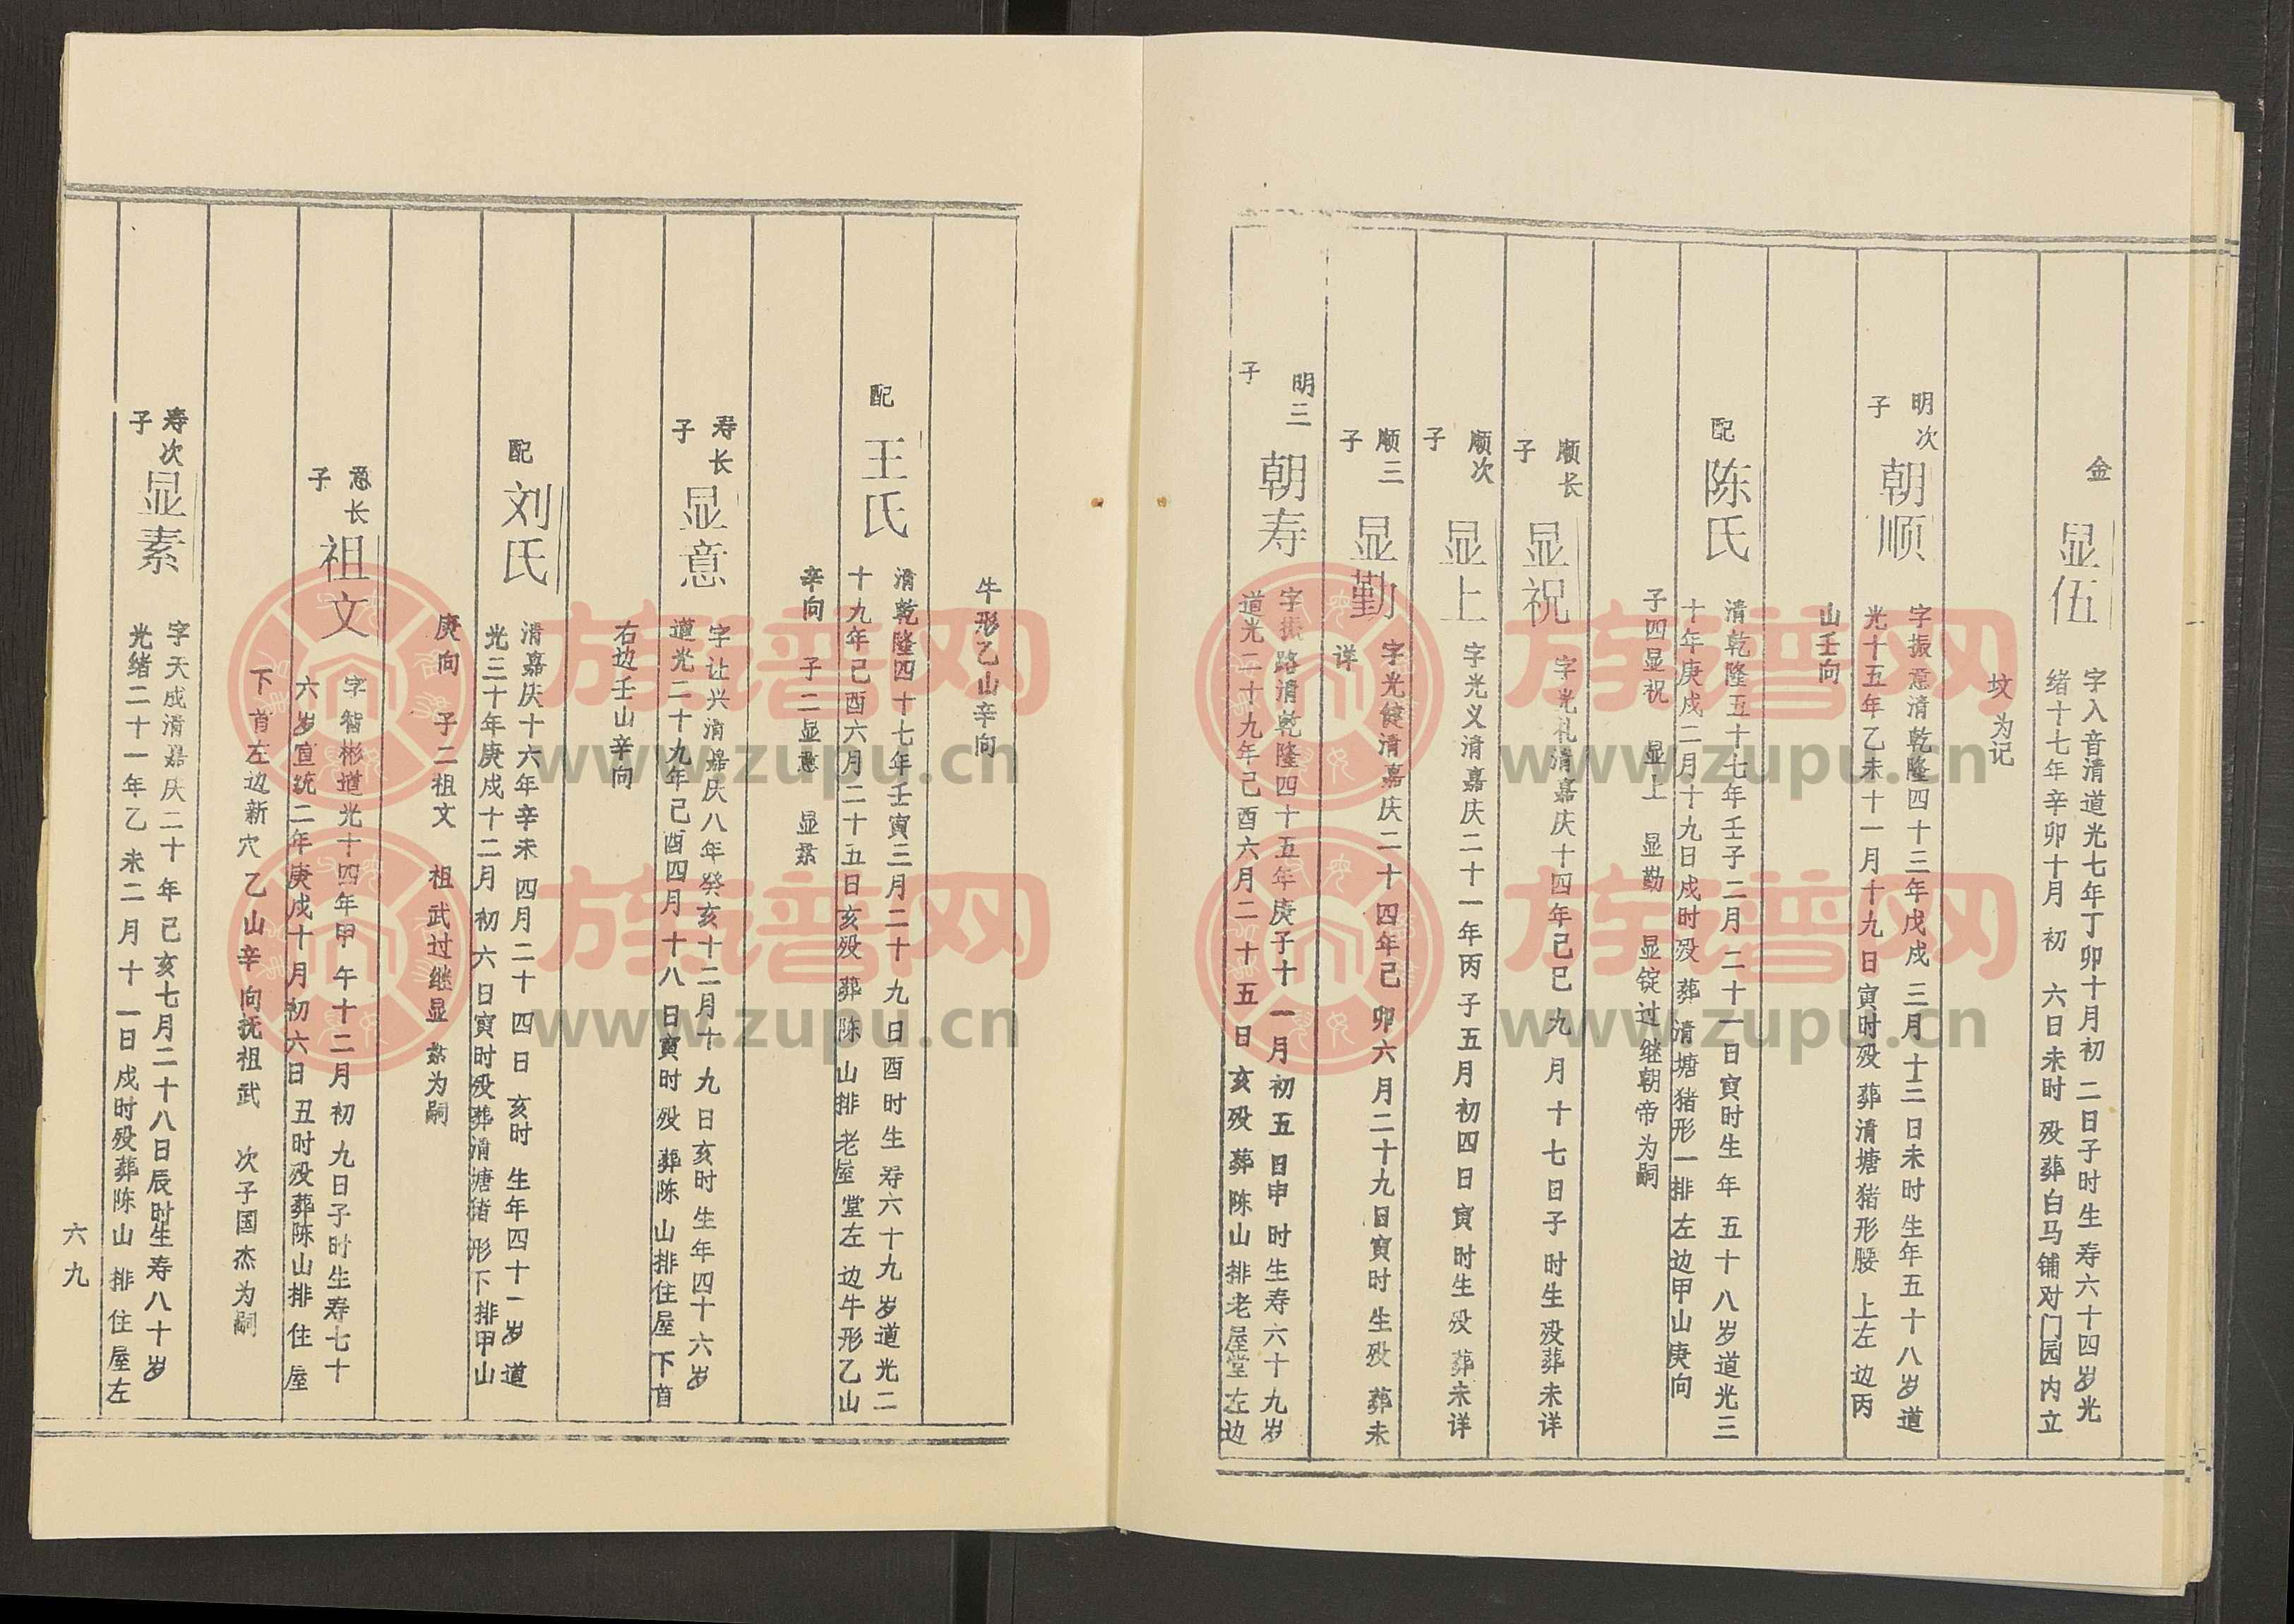 金
显伍
字入音清道光七年丁卯十月初二日子时生寿六十四岁光
绪十七年辛卯十月初六日未时殁葬白马铺对门园内立
坟为记
明次
子
朝顺
字振意清乾隆四十三年戊戌三月十二日未时生年五十八岁道
光十五年乙未十一月十九日寅时殁葬清塘猪形腰上左边丙
山壬向
配
陈氏
清乾隆五十七年壬子二月二十一日寅时生年五十八岁道光三
十年庚戌二月十九日戌时殁葬清塘猪形一排左边甲山庚向
子四显祝 显上 显勤 显锭过继朝帝为嗣
顺长
子
显祝
字光礼清嘉庆十四年己巳九月十七日子时生殁葬未详
顺次
子
显上
字光义清嘉庆二十一年丙子五月初四日寅时生殁葬未详
顺三
子
显勤
字光健清嘉庆二十四年己卯六月二十九日寅时生殁葬未
详
明三
子
朝寿
字振路清乾隆四十五年庚子十一月初五日申时生寿六十九岁
道光二十九年己酉六月二十五日亥殁葬陈山排老屋堂左边
牛形乙山辛向
配
王氏
清乾隆四十七年壬寅三月二十九日酉时生寿六十九岁道光二
十九年己酉六月二十五日亥殁葬陈山排老屋堂左边牛形乙山
辛向 子二显意 显素
寿长
子
显意
字让兴清嘉庆八年癸亥十二月十九日亥时生年四十六岁
道光二十九年己酉四月十八日寅时殁葬陈山排住屋下首
右边壬山辛向
配
刘氏
清嘉庆十六年辛未四月二十四日亥时生年四十一岁道
光三十年庚戌十二月初六日寅时殁葬清塘猪形下排甲山
庚向 子二祖文 祖武过继显素为嗣
意长
子
祖文
字智彬道光十四年甲午十二月初九日子时生寿七十
六岁宣统二年庚戌十月初六日丑时殁葬陈山排住屋
下首左边新穴乙山辛向抚祖武次子国杰为嗣
寿次
子
显素
字天成清嘉庆二十年己亥七月二十八日辰时生寿八十岁
光绪二十一年乙未二月十一日戌时殁葬陈山排住屋左
六九
族谱网
www.zupu.cn
族谱网
www.zupu.cn
族谱网
www.zupu.cn
族谱网
www.zupu.cn